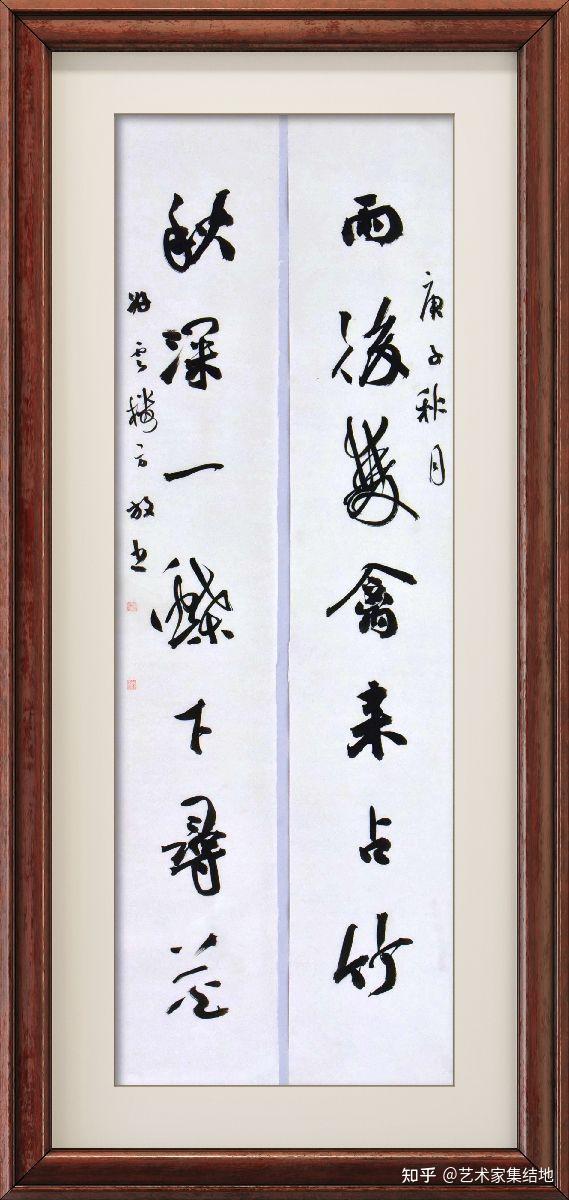 庚子秋月
雨後雙禽来占竹
秋深一蝶下尋花
雲樓方放书
知乎 @艺术家集结地